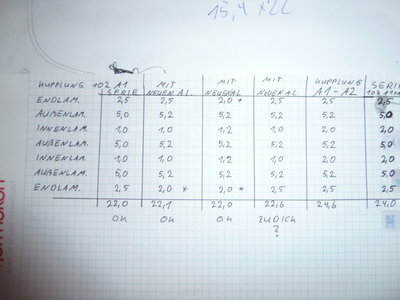 15,4 x 22
KUPPLUNG 102 A1 MIT MIT MIT KUPPLUNG SERIE
SERIE NEUEN AL. NEUENAL NEUENAL A1-A2 102
ENDLAM. 2,5 2,5 2,0 * 2,5 2,5 2,5
AUßENLAM. 5,0 5,2 5,2 5,2 5,2 5,0
INNENLAM. 1,0 1,0 1,2 1,0 2,0 2,0
AUßENLAM. 5,0 5,2 5,2 5,2 5,2 5,0
INNENLAM. 1,0 1,0 1,2 1,0 2,0 2,0
AUßENLAM. 5,0 5,2 5,2 5,2 5,2 5,0
ENDLAM. 2,5 2,0 * 2,0 * 2,5 2,5 2,5
22,0 22,1 22,0 22,6 24,6 24,0
OK OK OK ZU DICH
?